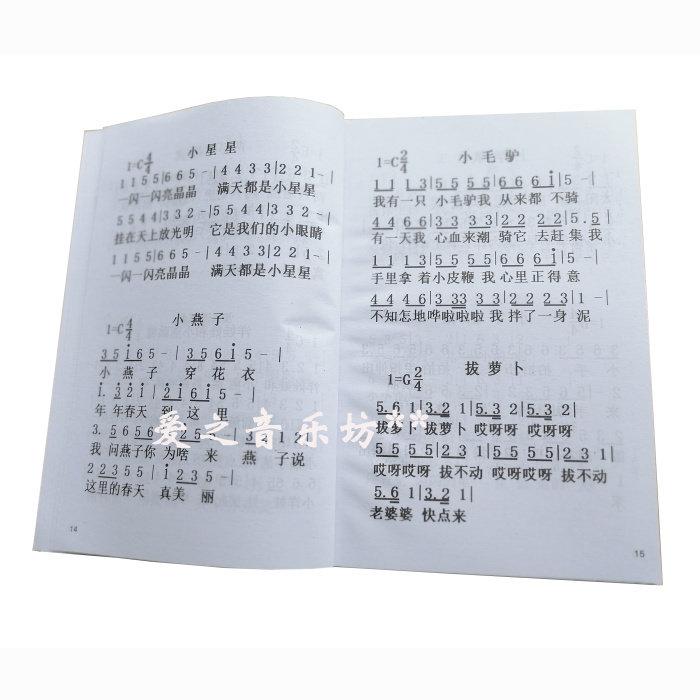 小星星
1=C 4/4
1 1 5 5 | 6 6 5 - | 4 4 3 3 | 2 2 1 - |
一闪一闪亮晶晶 满天都是小星星
5 5 4 4 | 3 3 2 - | 5 5 4 4 | 3 3 2 - |
挂在天上放光明 它是我们的小眼睛
1 1 5 5 | 6 6 5 - | 4 4 3 3 | 2 2 1 - |
一闪一闪亮晶晶 满天都是小星星
小燕子
1=C 4/4
3 5 i 6 5 - | 3 5 6 i 5 - |
小 燕 子 穿 花 衣
i. 3 2 i | 2 i 6 i 5 - |
年 年春天 到 这 里
3. 5 6 5 6
我 问燕子你 为啥 来 燕 子说
2 2 3 5 5 - | i 2 3 5 - |
这里的春天 真美 丽
爱之音乐坊
14
小毛驴
1=C 2/4
1 1 1 3 | 5 5 5 5 | 6 6 6 i | 5 - |
我有一只 小毛驴我 从来都 不骑
4 4 6 6 | 3 3 3 3 | 2 2 2 2 | 5 . 5 |
有一天我 心血来潮 骑它 去赶 集 我
1 1 1 3 | 5 5 5 5 | 6 6 6 i | 5 - |
手里拿 着小皮鞭 我 心里正得 意
4 4 4 6 | 3 33 3 3 | 2 2 2 3 | 1 - |
不知怎地哗啦啦啦 我 拌了一身 泥
拔萝卜
1=G 2/4
5. 6 3.2 1 | 5.6 3.2 1 | 5. 3 2 | 5. 3 2 |
拔萝卜 拔萝卜 哎呀呀 哎呀呀
5 5 5 5 | 2 3 1 | 5 5 5 5 | 2 3 1 |
哎呀哎呀 拔不动 哎呀哎呀 拔不动
5. 6 1 | 3.2 1 |
老婆婆 快点来
15